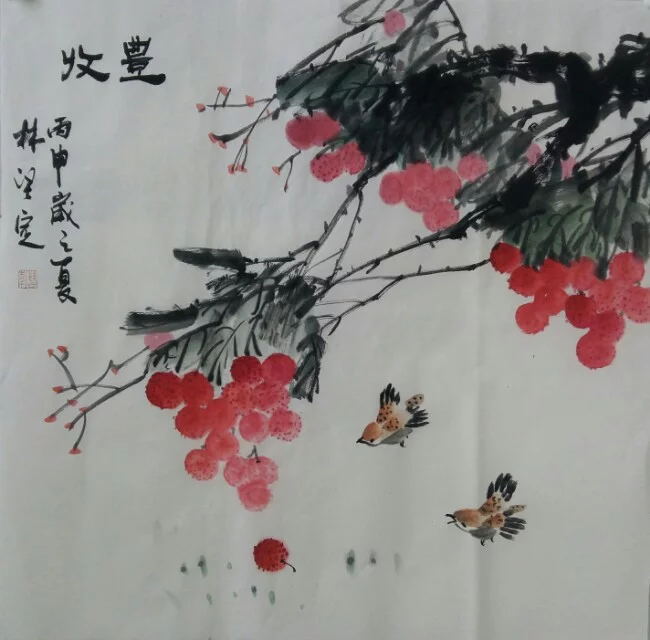 豐收
丙申歲之夏
林望定